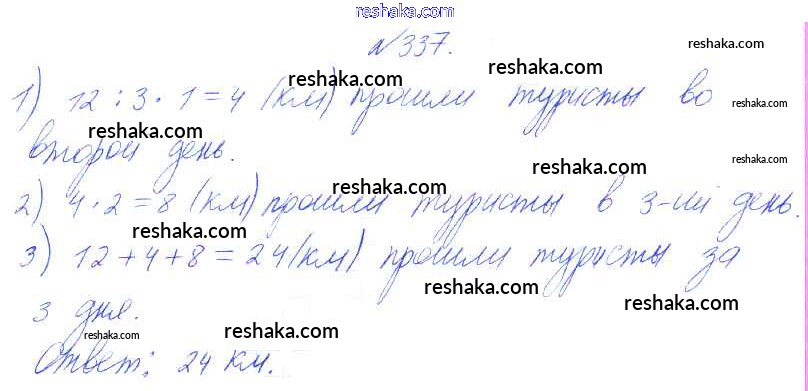 reshaka.com
№337.
reshaka.com
reshaka.com
1) 12 : 3 · 1 = 4 (км) прошли туристы во
reshaka.com
reshaka.com
второй день.
reshaka.com
reshaka.com
reshaka.com
2) 4 · 2 = 8 (км) прошли туристы в 3-ий день.
reshaka.com
3) 12 + 4 + 8 = 24 (км) прошли туристы за
reshaka.com
3 дня.
reshaka.com
reshaka.com
reshaka.com
Ответ: 24 км.
reshaka.com